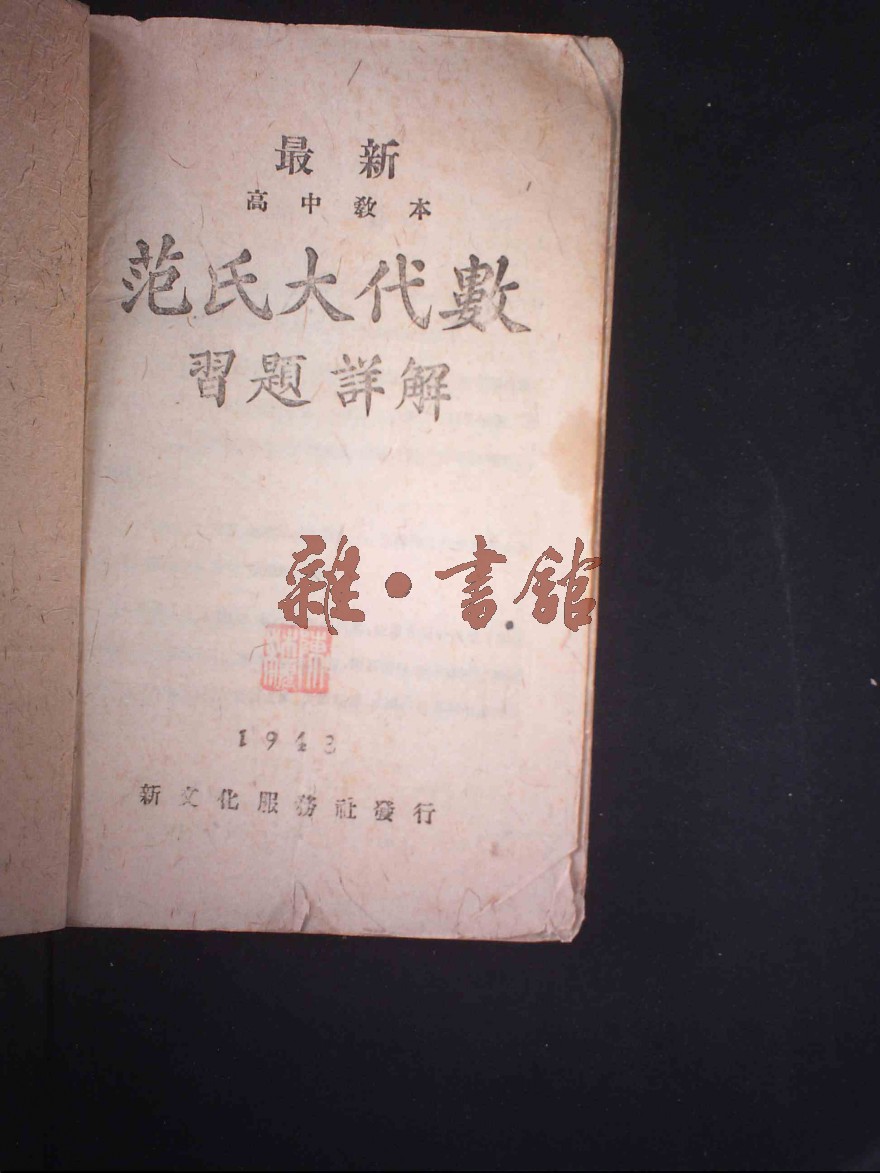 最新
高中教本
范氏大代數
習題詳解
雜·書館
1943
新文化服務社發行